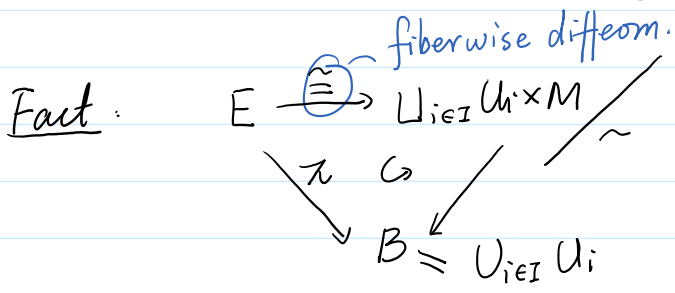 fiberwise diffeom.
Fact : E ≅ → ⊔i∈I Ui × M / ~
π ↻
B = ∪i∈I Ui